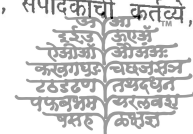 , संपादकाची कर्तव्ये,
अ आ
इईउ
कखगघङ चछजझञ
टठडढण तथदधन
पफबभम यरलवश
षसह ळक्षज्ञ